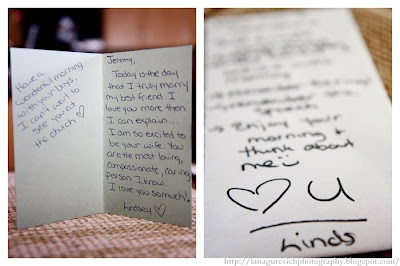 Have a
wonderful morning
with your boys.
I can't wait to
see you at
the church ♡
Jeremy,
Today is the day
that I truly marry
my best friend. I
love you more then
I can explain...
I am so excited to
be your wife. You
are the most loving,
compassionate, caring
person I know.
I love you so much.
Lindsey ♡
→ Enjoy your
morning &
think about
me☺
♡ U
Linds
http://lanagurevichphotography.blogspot.com/